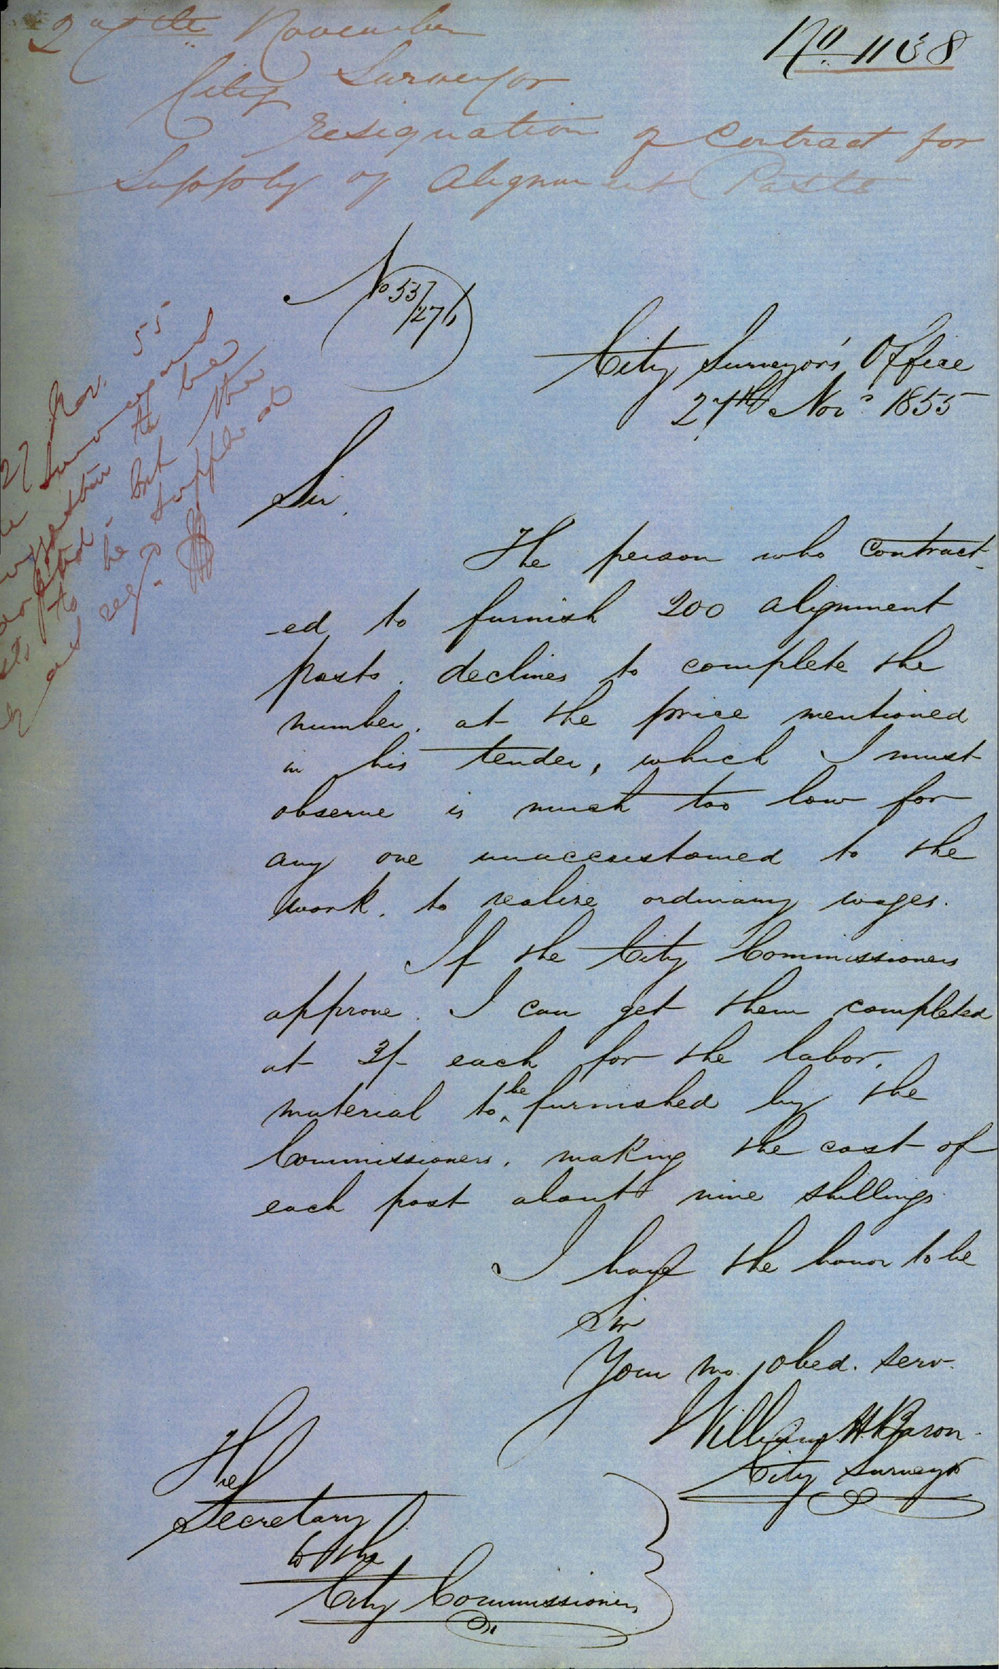 27th November
No. 1138
City Surveyor
Resignation of Contract for
Supply of Alignment Posts
No 53/
27/11
City Surveyor's Office
27th Novr 1855
Sir,
The person who contract-
ed to furnish 200 alignment
posts. declines to complete the
number. at the price mentioned
in his tender, which I must
observe is much too low for
any one unaccustomed to the
work. to realize ordinary wages.
If the City Commissioners
approve. I can get them completed
at 3/- each for the labor,
material to be furnished by the
Commissioners. making the cost of
each post about nine shillings.
I have the honor to be
Sir
Your mo. obed. serv.
William H. Baron.
City Surveyor
The
Secretary
to the
City Commissioners
27 Nov. 55
Surveyors
to be
but the
to be supplied
as req.